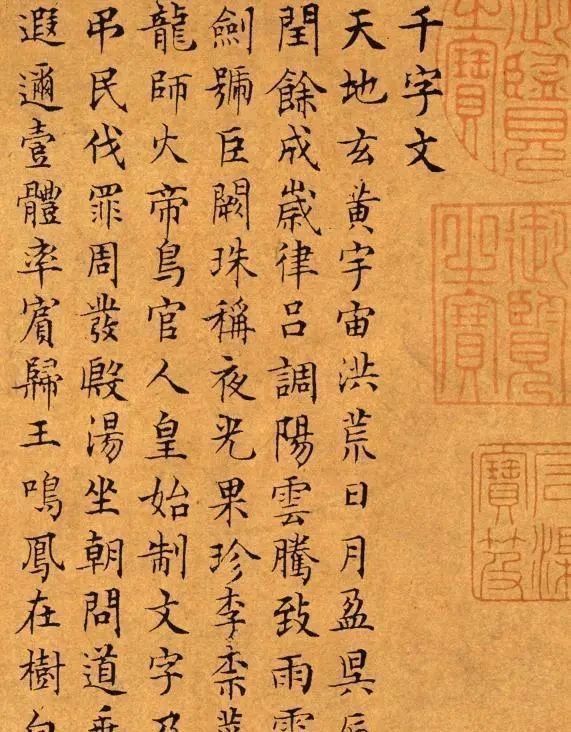 御覽
之寶
御覽
之寶
石渠
寶笈
千字文
天地玄黃宇宙洪荒日月盈昃辰
閏餘成歲律呂調陽雲騰致雨露
劍號巨闕珠稱夜光果珍李柰菜
龍師火帝鳥官人皇始制文字乃
弔民伐罪周發殷湯坐朝問道垂
遐邇壹體率賓歸王鳴鳳在樹白